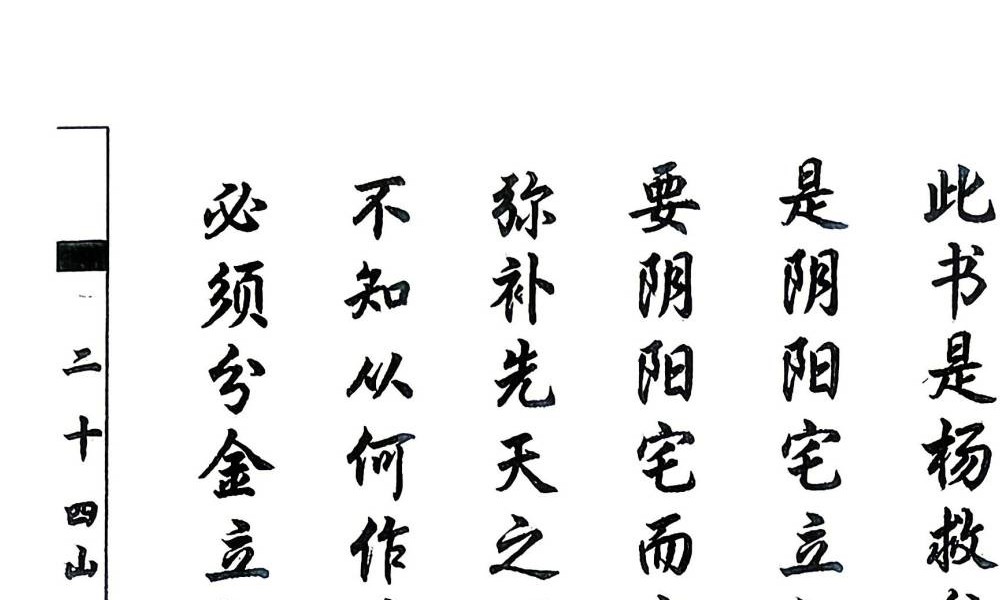 此书是杨救
是阴阳宅立
要阴阳宅而
弥补先天之
不知从何作
必须分金立
二十四山